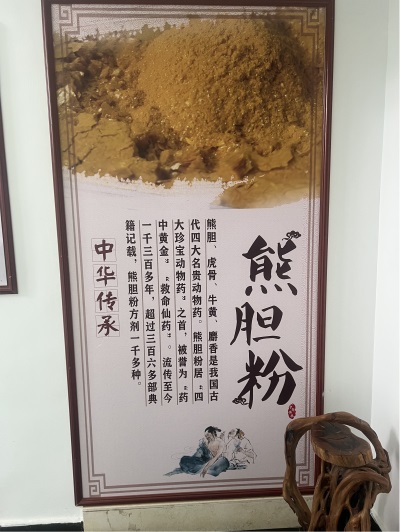 熊胆粉
熊胆、虎骨、牛黄、麝香是我国古
代四大名贵动物药。熊胆粉居“四
大珍宝动物药”之首，被誉为“药
中黄金”“救命仙药”。流传至今
一千三百多年，超过三百六多部典
籍记载，熊胆粉方剂一千多种。
中华传承